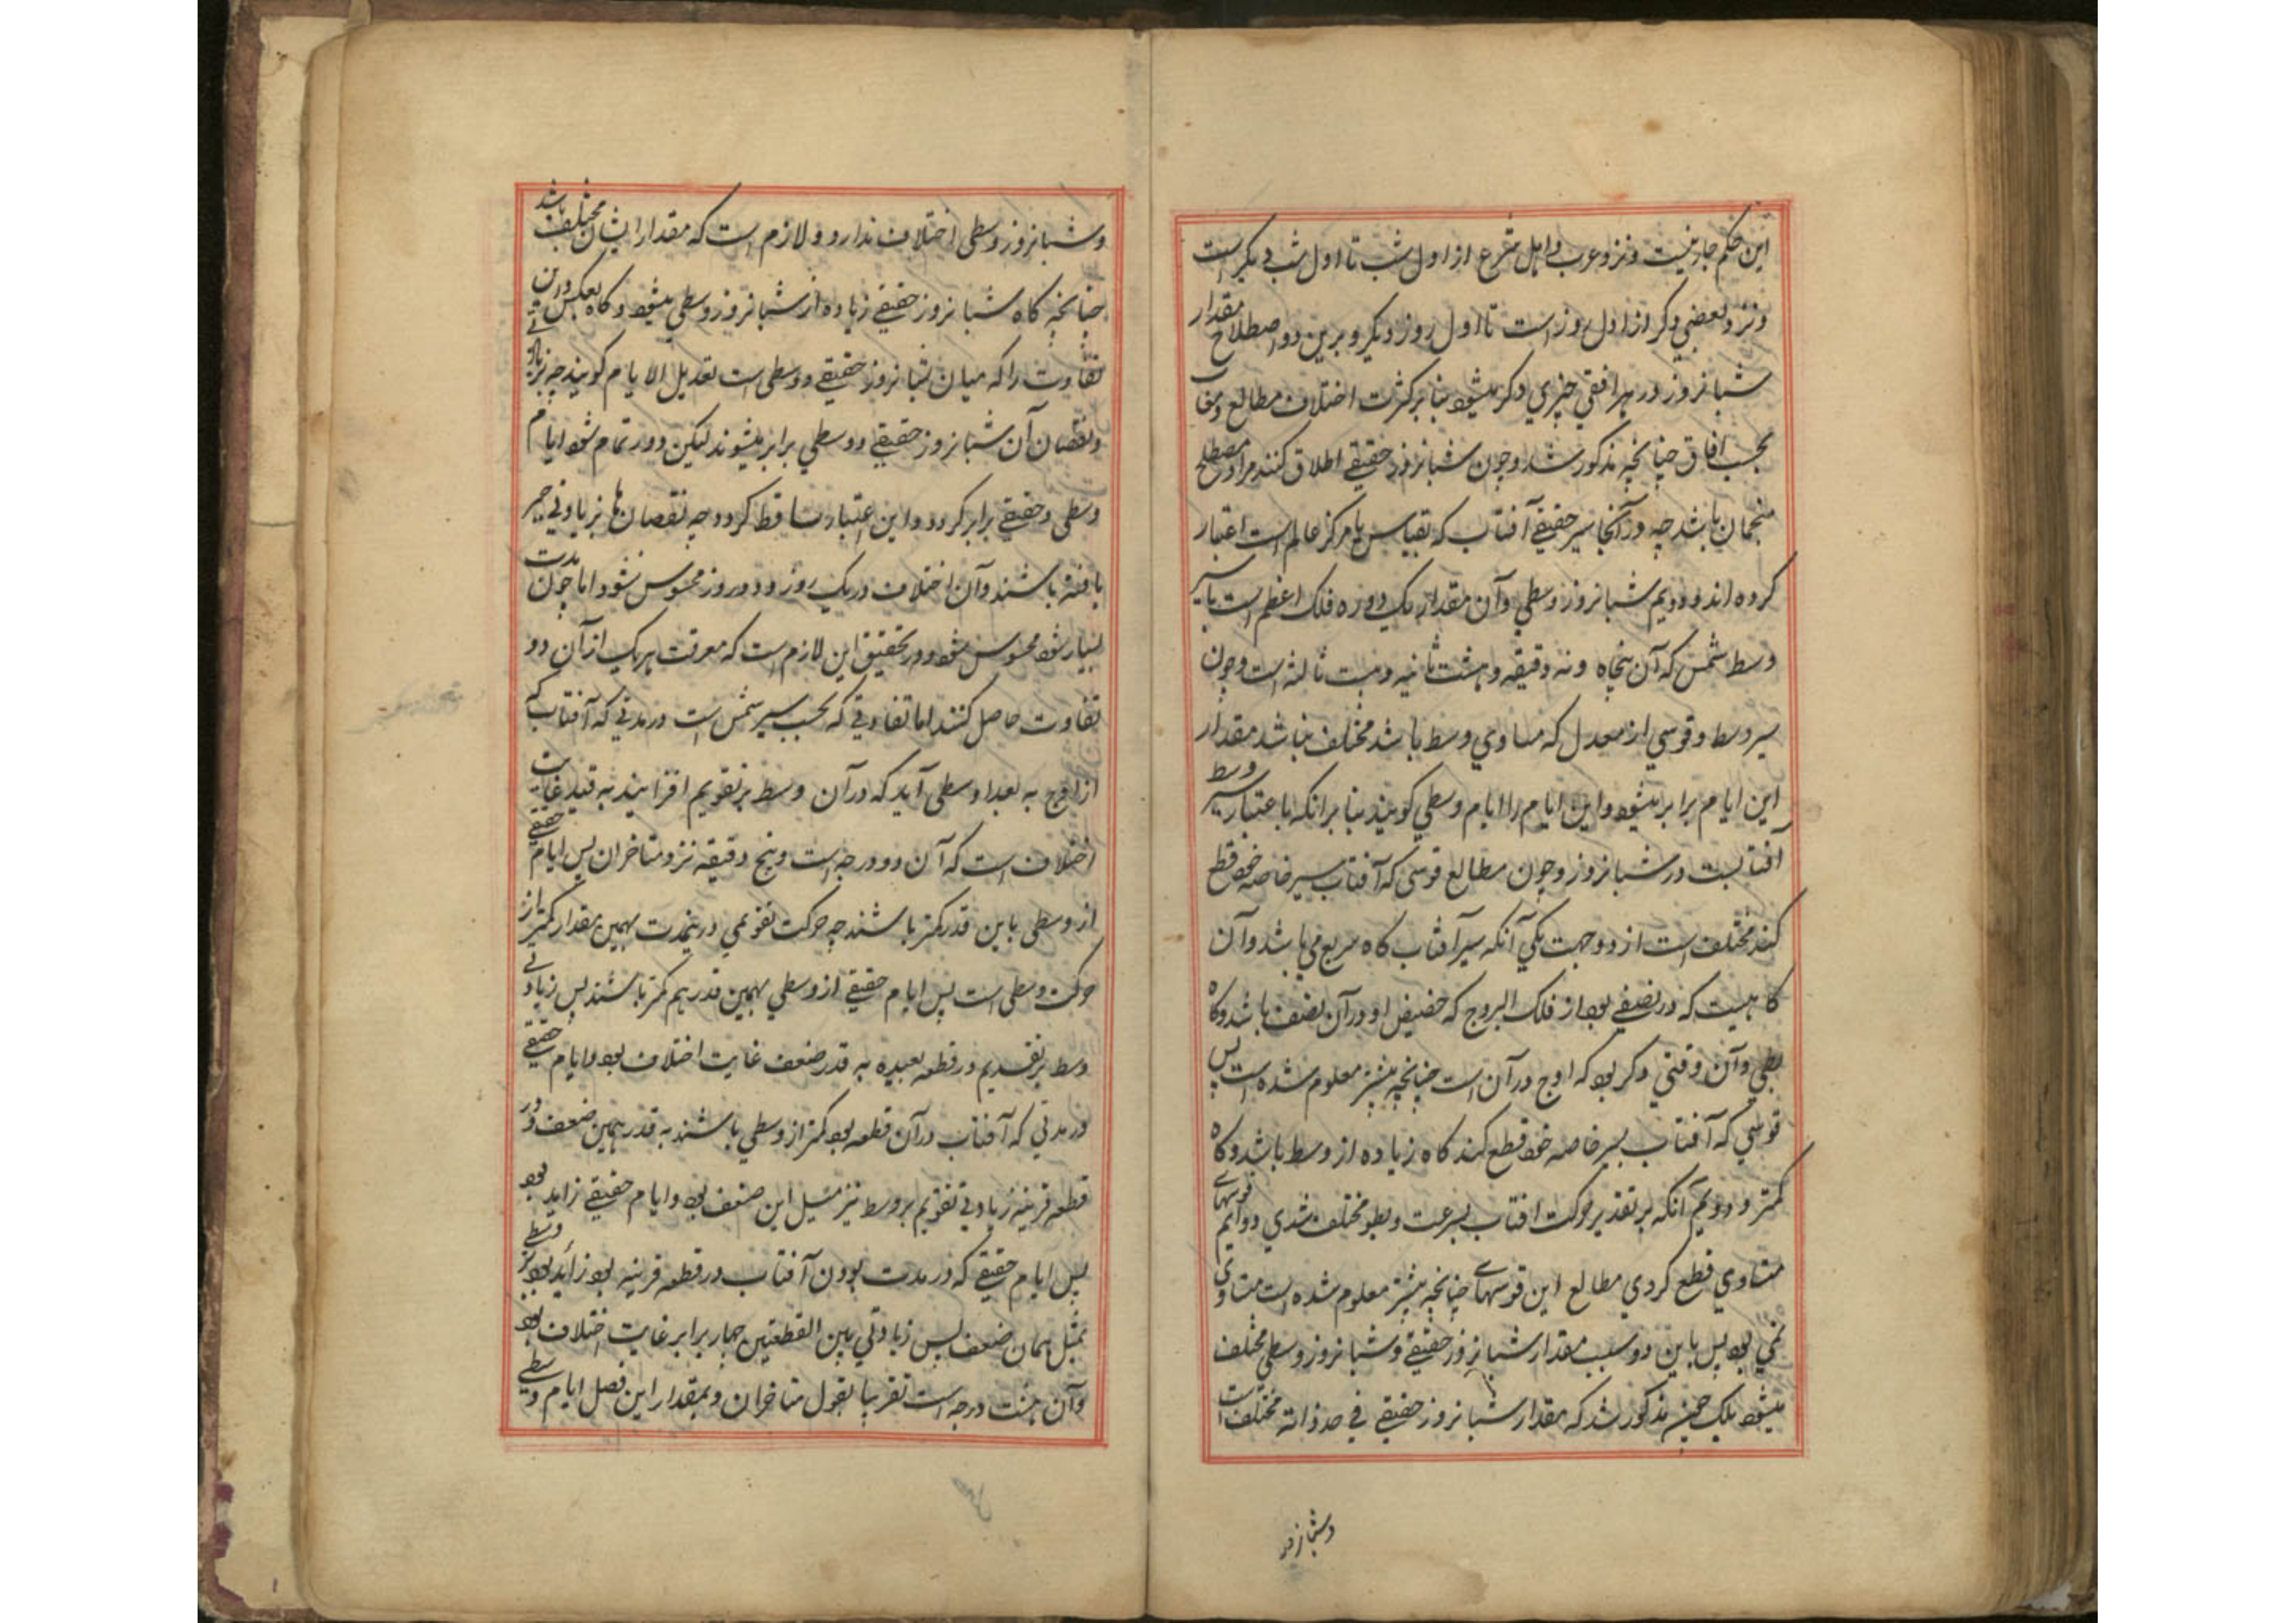 این حکم جاری نیست و نزد عرب و اهل شرع از اول شب تا اول شب دیگر است
و نزد بعضی دگر از اول روز است تا اول روز دیگر و برین دو اصطلاح مقدار
شبانروز در هر افقی چیزی دگر میشود بنابر کثرت اختلاف مطالع و مغارب
بحسب افاق چنانچه مذکور شد و چون شبانروز حقیقی اطلاق کنند مراد مصطلح
منجمان باشد چه در آنجا سیر حقیقی آفتاب که بقیاس با مرکز عالم است اعتبار
کرده اند و دویم شبانروز وسطی و آن مقدار یک دوره فلک اعظم است با سیر
وسط شمس که آن پنجاه و نه دقیقه و هشت ثانیه و بیست ثالثه است و چون
سیر وسط و قوسی از معدل که مساوی وسط باشد مختلف نباشد مقدار
این ایام برابر میشود و این ایام را ایام وسطی کویند بنابر انکه باعتبار سیر وسط
آفتابست در شبانروز و چون مطالع قوسی که آفتاب بسیر خاصه خود قطع
کند مختلف است از دو جهت یکی آنکه سیر آفتاب کاه سریع می باشد و آن
کاهیست که در نصفی بود از فلک البروج که حضیض او در آن نصف باشد و کاه
بطی و آن وقتی دگر بود که اوج در آن است چنانچه پیشتر معلوم شده است پس
قوسی که آفتاب بسیر خاصه خود قطع کند کاه زیاده از وسط باشد و کاه
کمتر و دویم آنکه بر تقدیر حرکت افتاب بسرعت و بطو مختلف نشدی و دوایم قوسهای
متساوی قطع کردی مطالع این قوسهای چنانچه پیشتر معلوم شده است متساوی
نمی بود پس باین دو سبب مقدار شبانروز حقیقی و شبانروز وسطی مختلف
میشود بلکه چنین مذکور شد که مقدار شبانروز حقیقی فی حد ذاته مختلف است
وشبانروز
وشبانروز وسطی اختلاف ندارد و لازم است که مقدار ایشان مختلف باشد
چنانچه کاه شبانروز حقیقی زیاده از شبانروز وسطی میشود و کاه بعکس و این
تفاوت را که میان شبانروز حقیقی و وسطی است تعدیل الایام کویند چه بزیادتی
و نقصان آن شبانروز حقیقی و وسطی برابر میشوند لیکن دور تمام شود ایام
وسطی و حقیقی برابر کردد و این اعتبار ساقط کردد چه نقصان ها بزیادتی جبر
یافته باشند و آن اختلاف در یک روز و دو روز محسوس نشود اما چون مدت
بسیار شود محسوس شود و در تحقیق این لازم است که معرفت هر یک از آن دو
تفاوت حاصل کنند اما تفاوتی که بحسب سیر شمس است در مدتی که آفتاب که
از اوج به بعد اوسطی آید که در آن وسط بر تقویم افزایند به قید غایت
اختلاف است که آن دو درجه است و پنج دقیقه نزد متاخران پس ایام حقیقی
از وسطی باین قدر کمتر باشند چه حرکت تقویمی درینمدت بهمین مقدار کمتر از
حرکت وسطی است پس ایام حقیقی از وسطی بهمین قدر هم کمتر باشند پس زیادتی
وسط بر تقدیم در قطعه بعیده به قدر ضعف غایت اختلاف بود و ایام حقیقی
در مدتی که آفتاب در آن قطعه بود کمتر از وسطی باشند به قدر همین ضعف و در
قطعه قرینه زیادتی تقویم بر وسط نیز مثل این ضعف بود و ایام حقیقی زاید بود
پس ایام حقیقی که در مدت بودن آفتاب در قطعه قرینه بود زاید بود بر وسطی
بمثل همان ضعف پس زیادتی بین القطعتین چهار برابر غایت اختلاف بود
و آن هشت درجه است تقریبا بقول متاخران و بمقدار این فصل ایام وسطی